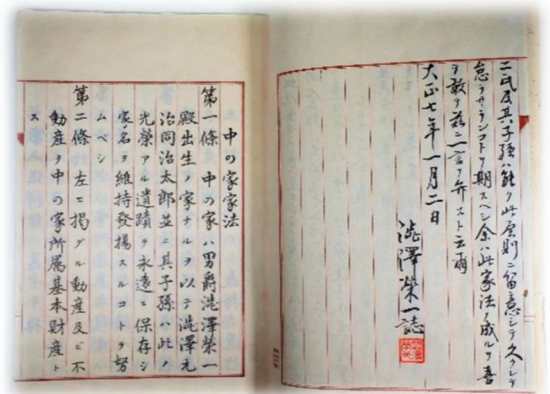 二氏及其子孫ハ能ク此原則ニ留意シテ久クシテ
怠ラサランコトヲ期スベシ余ハ此家法ノ成ルヲ喜
ヲ敢テ茲ニ一言ヲ弁スト云爾
大正七年一月二日
澁澤榮一誌
中の家家法
第一條 中の家ハ男爵澁澤榮一
殿出生ノ家ナルヲ以テ澁澤元
治同治太郎並ニ其子孫ハ此ノ
光榮アル遺蹟ヲ永遠ニ保存シ
家名ヲ維持發揚スルコトヲ努
ムベシ
第二條 左ニ揭グル動産及ビ不
動産ヲ中の家所属基本財産ト
ス